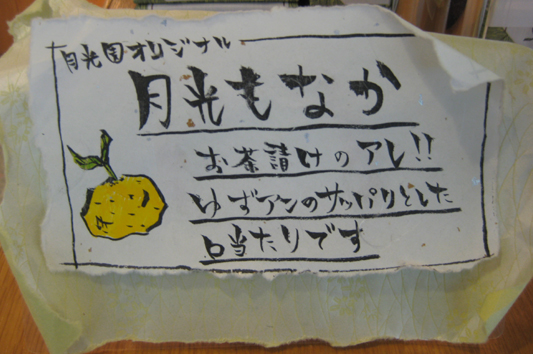 月光園オリジナル
月光もなか
お茶請けのアレ!!
ゆずアンのサッパリとした
口当たりです